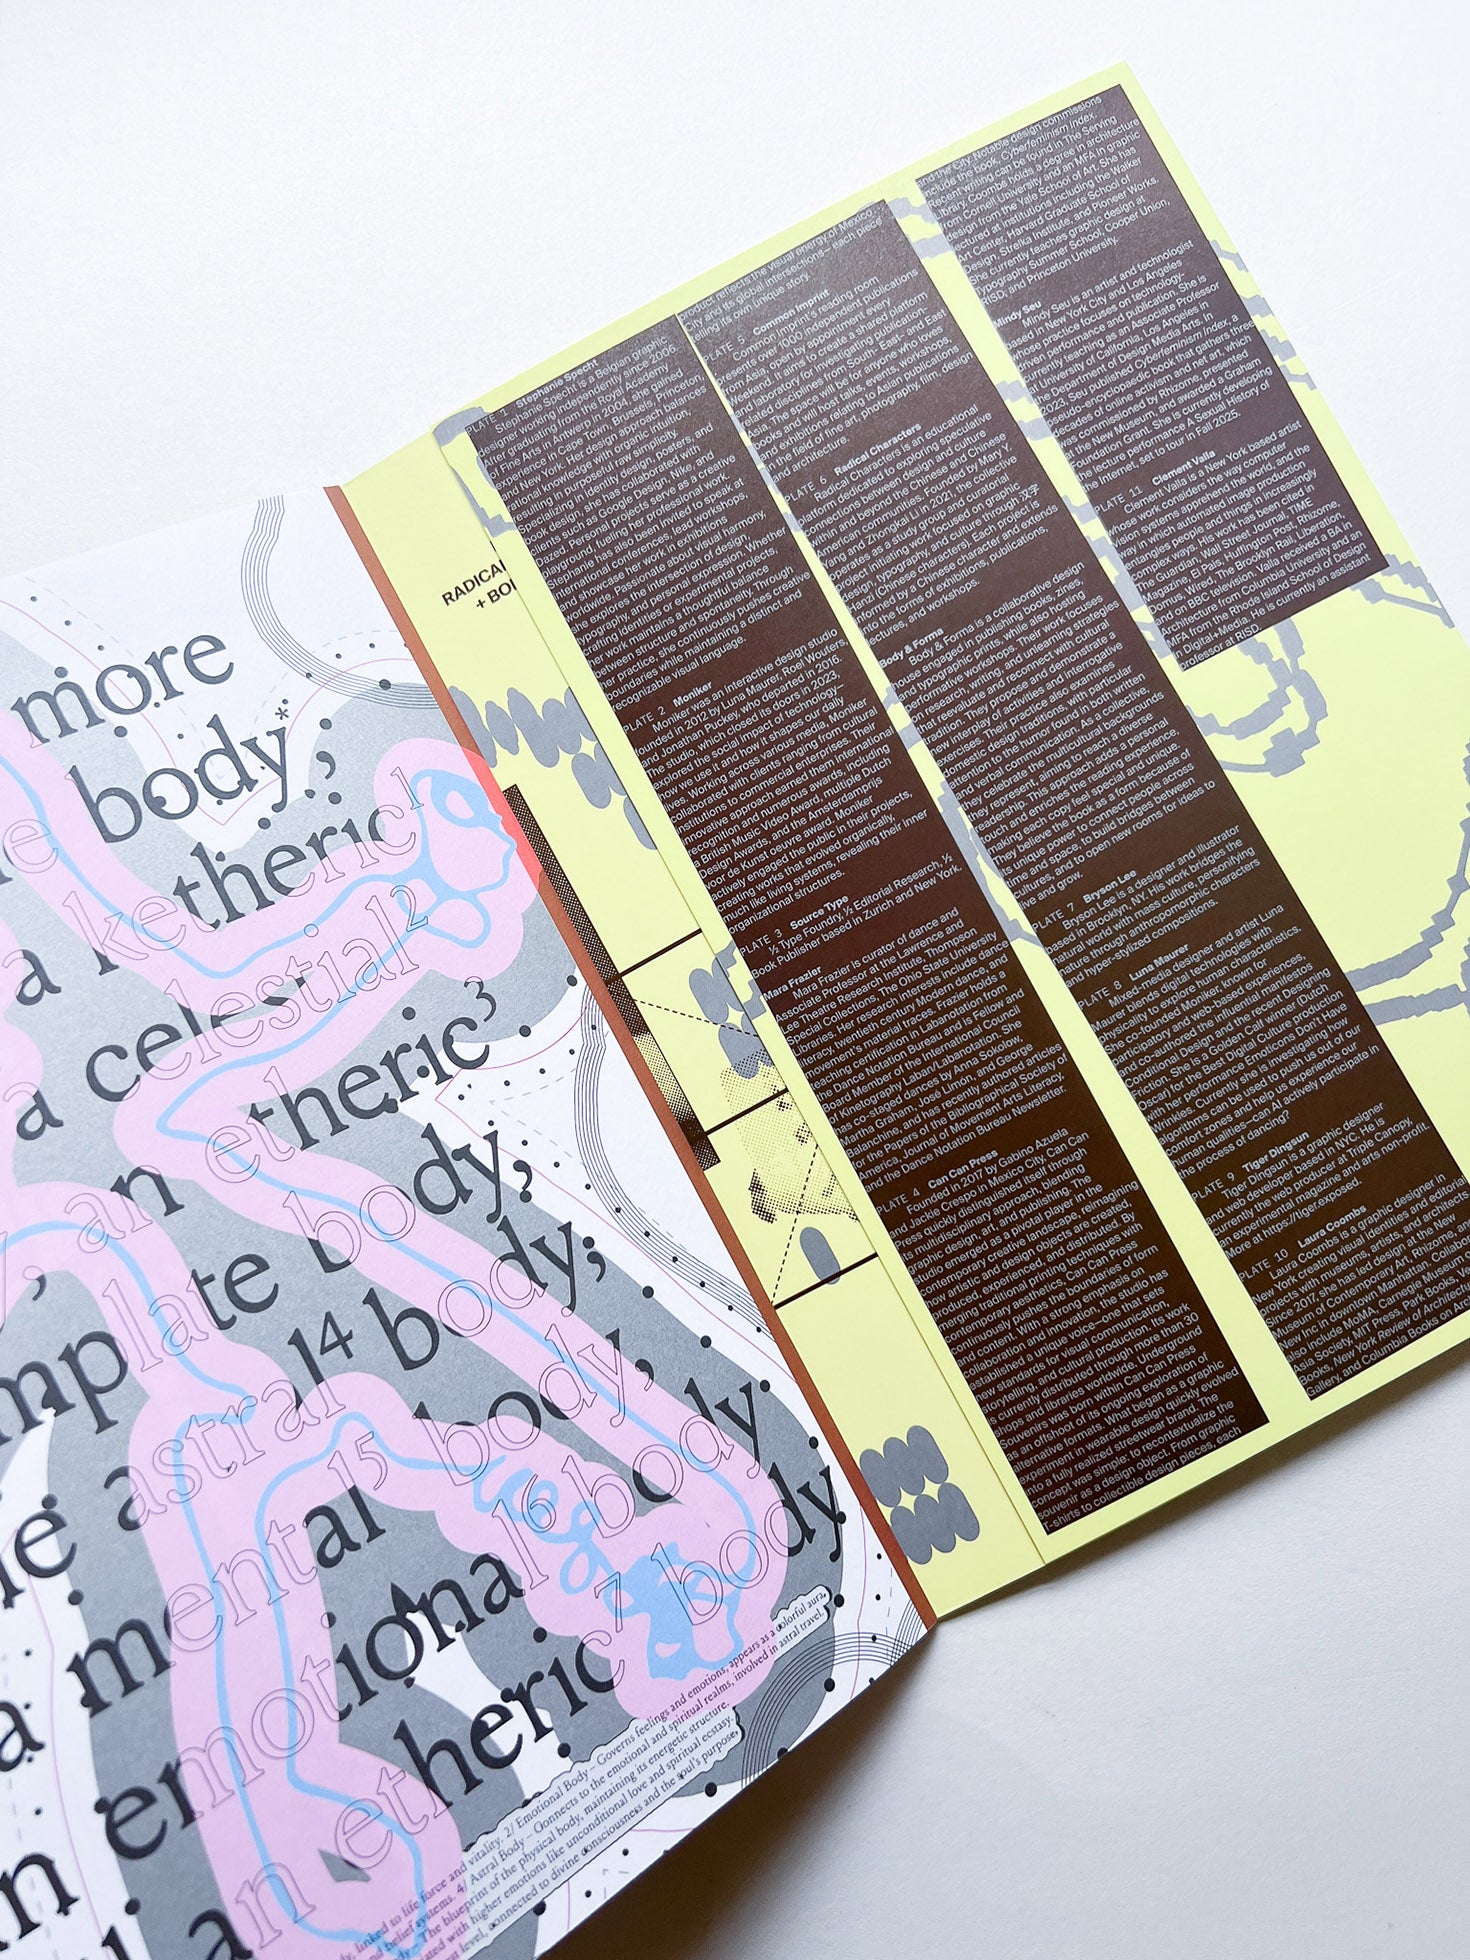 more
body*;
a ketheric¹
a celestial²
an etheric³
template body,
astral⁴ body;
a mental⁵ body,
an emotional⁶ body,
an etheric⁷ body
life force and vitality. 2/ Emotional Body – Governs feelings and emotions, appears as a colorful aura,
and belief systems. 4/ Astral Body – Connects to the emotional and spiritual realms, involved in astral travel.
The blueprint of the physical body, maintaining its energetic structure.
with higher emotions like unconditional love and spiritual ecstasy.
level, connected to divine consciousness and the soul's purpose,
RADICAL
+ BO
PLATE 1 Stephanie Specht
Stephanie Specht is a Belgian graphic
designer working independently since 2006.
After graduating from the Royal Academy
of Fine Arts in Antwerp in 2004, she gained
experience in Cape Town, Brussels, Princeton,
and New York. Her design approach balances
rational knowledge with organic intuition,
resulting in purposeful yet raw simplicity.
Specializing in identity design, posters, and
book design, she has collaborated with
clients such as Google Design, Nike, and
playground, fueling her professional work.
Stephanie has also been invited to speak at
international conferences, lead workshops,
and showcase her work in exhibitions
worldwide. Passionate about visual harmony,
she explores the intersection of design,
typography, and personal expression. Whether
crafting identities or experimental projects,
her work maintains a thoughtful balance
between structure and spontaneity. Through
her practice, she continuously pushes creative
boundaries while maintaining a distinct and
recognizable visual language.
PLATE 2 Moniker
Moniker was an interactive design studio
founded in 2012 by Luna Maurer, Roel Wouters,
and Jonathan Puckey, who departed in 2016.
The studio, which closed its doors in 2023,
explored the social impact of technology—
how we use it and how it shapes our daily
lives. Working across various media, Moniker
collaborated with clients ranging from cultural
institutions to commercial enterprises. Their
innovative approach earned them international
recognition and numerous awards, including
a British Music Video Award, multiple Dutch
Design Awards, and the Amsterdamprijs
voor de Kunst oeuvre award. Moniker
actively engaged the public in their projects,
creating works that evolved organically,
much like living systems, revealing their inner
organizational structures.
PLATE 3 Source Type
⅓ Type Foundry, ⅓ Editorial Research, ⅓
Book Publisher based in Zurich and New York.
Mara Frazier
Mara Frazier is curator of dance and
Associate Professor at the Lawrence and
Lee Theatre Research Institute, Thompson
Special Collections, The Ohio State University
Libraries. Her research interests include dance
literacy, twentieth century Modern dance, and
movement's material traces. Frazier holds a
teaching certification in Labanotation from
the Dance Notation Bureau and is Fellow and
Board Member of the International Council
of Kinetography Laban/Labanotation. She
has co-staged dances by Anna Sokolow,
Martha Graham, José Limón, and George
Balanchine, and has recently authored articles
for the Papers of the Bibliographical Society of
America, Journal of Movement Arts Literacy,
and the Dance Notation Bureau Newsletter.
PLATE 4 Can Can Press
Founded in 2017 by Gabino Azuela
and Jackie Crespo in Mexico City, Can Can
Press quickly distinguished itself through
its multidisciplinary approach, blending
graphic design, art, and publishing. The
studio emerged as a pivotal player in the
contemporary creative landscape, reimagining
how artistic and design objects are created,
produced, experienced, and distributed. By
merging traditional printing techniques with
contemporary aesthetics, Can Can Press
continuously pushes the boundaries of form
and content. With a strong emphasis on
collaboration and innovation, the studio has
established a unique voice—one that sets
new standards for visual communication,
storytelling, and cultural production. Its work
is currently distributed through more than 30
shops and libraries worldwide. Underground
Souvenirs was born within Can Can Press
as an offshoot of its ongoing exploration of
alternative formats. What began as a graphic
experiment in wearable design quickly evolved
into a fully realized streetwear brand. The
concept was simple: to recontextualize the
souvenir as a design object. From graphic
T-shirts to collectible design pieces, each
product reflects the visual energy of Mexico
City and its global intersections—each piece
telling its own unique story.
PLATE 5 Common Imprint
Common Imprint's reading room
presents over 1000 independent publications
from Asia, open by appointment every
weekend. It aims to create a shared platform
and laboratory for investigating publication-
related disciplines from South-, East-, and East
Asia. The space will be for anyone who loves
books and will host talks, events, workshops,
and exhibitions relating to Asian publications
in the field of fine art, photography, film, design
and architecture.
PLATE 6 Radical Characters
Radical Characters is an educational
platform dedicated to exploring speculative
connections between design and culture
within and beyond the Chinese and Chinese
American communities. Founded by Mary Y.
Yang and Zhongkai Li in 2021, the collective
operates as a study group and curatorial
project initiating work focused on graphic
design, typography, and culture through 汉字
Hanzi (Chinese characters). Each project is
informed by a Chinese character and extends
into the forms of exhibitions, publications,
lectures, and workshops.
Body & Forms
Body & Forms is a collaborative design
house engaged in publishing books, zines,
and typographic prints, while also hosting
performative workshops. Their work focuses
on research, writing, and unlearning strategies
that reevaluate and reconnect with cultural
tradition. They propose and demonstrate a
new interplay of activities and interrogative
exercises. Their practice also examines
domestic design traditions, with particular
attention to the humor found in both written
and verbal communication. As a collective,
they celebrate the multicultural backgrounds
they represent, aiming to reach a diverse
readership. This approach adds a personal
touch and enriches the reading experience,
making each copy feel special and unique.
They believe the book as a format because of
its unique power to connect people across
time and space, to build bridges between
cultures, and to open new rooms for ideas to
live and grow.
PLATE 7 Bryson Lee
Bryson Lee is a designer and illustrator
based in Brooklyn, NY. His work bridges the
natural world with mass culture, personifying
nature through anthropomorphic characters
and hyper-stylized compositions.
PLATE 8 Luna Maurer
Mixed-media designer and artist Luna
Maurer blends digital technologies with
physicality to explore human characteristics.
She co-founded Moniker, known for
participatory and web-based experiences,
and co-authored the influential manifestos
Conditional Design and the recent Designing
Friction. She is a Golden Calf winner (Dutch
Oscar) for the Best Digital Culture production
with her performance Emoticons Don't Have
Wrinkles. Currently she is investigating how
algorithms can be used to push us out of our
comfort zones and help us experience our
human qualities—can AI actively participate in
the process of dancing?
PLATE 9 Tiger Dingsun
Tiger Dingsun is a graphic designer
and web developer based in NYC. He is
currently the web producer at Triple Canopy,
an experimental magazine and arts non-profit.
More at https://tiger.exposed.
PLATE 10 Laura Coombs
Laura Coombs is a graphic designer in
New York creating visual identities and editorial
projects with museums, artists, and architects
Since 2017, she has led design at the New
Museum of Contemporary Art, Rhizome, and
New Inc in downtown Manhattan. Collaborat
also include MoMA, Carnegie Museum
Asia Society, MIT Press, Park Books,
Books, New York Review of Architecture
Gallery, and Columbia Books on Ar
and the City. Notable design commissions
include the book, Cyberfeminism Index.
Recent writing can be found in The Serving
Library. Coombs holds a degree in architecture
from Cornell University and an MFA in graphic
design from the Yale School of Art. She has
lectured at institutions including the Walker
Art Center, Harvard Graduate School of
Design, Strelka Institute, and Pioneer Works.
She currently teaches graphic design at
Typography Summer School, Cooper Union,
RISD, and Princeton University.
Mindy Seu
Mindy Seu is an artist and technologist
based in New York City and Los Angeles
whose practice focuses on technology-
driven performance and publication. She is
currently teaching as an Associate Professor
at University of California, Los Angeles in
the Department of Design Media Arts. In
2023, Seu published Cyberfeminism Index, a
pseudo-encyclopaedic book that gathers three
decades of online activism and net art, which
was commissioned by Rhizome, presented
the New Museum, and awarded a Graham
Foundation Grant. She is currently developing
the lecture performance A Sexual History of
the Internet, set to tour in Fall 2025.
PLATE 11 Clement Valla
Clement Valla is a New York based artist
whose work considers the way computer
vision systems apprehend the world, and the
way in which automated image production
entangles people and things in increasingly
complex ways. His work has been cited in
The Guardian, Wall Street Journal, TIME
Magazine, El País, Huffington Post, Rhizome,
Domus, Wired, The Brooklyn Rail, Liberation,
and on BBC television. Valla received a BA in
Architecture from Columbia University and an
MFA from the Rhode Island School of Design
in Digital+Media. He is currently an assistant
professor at RISD.